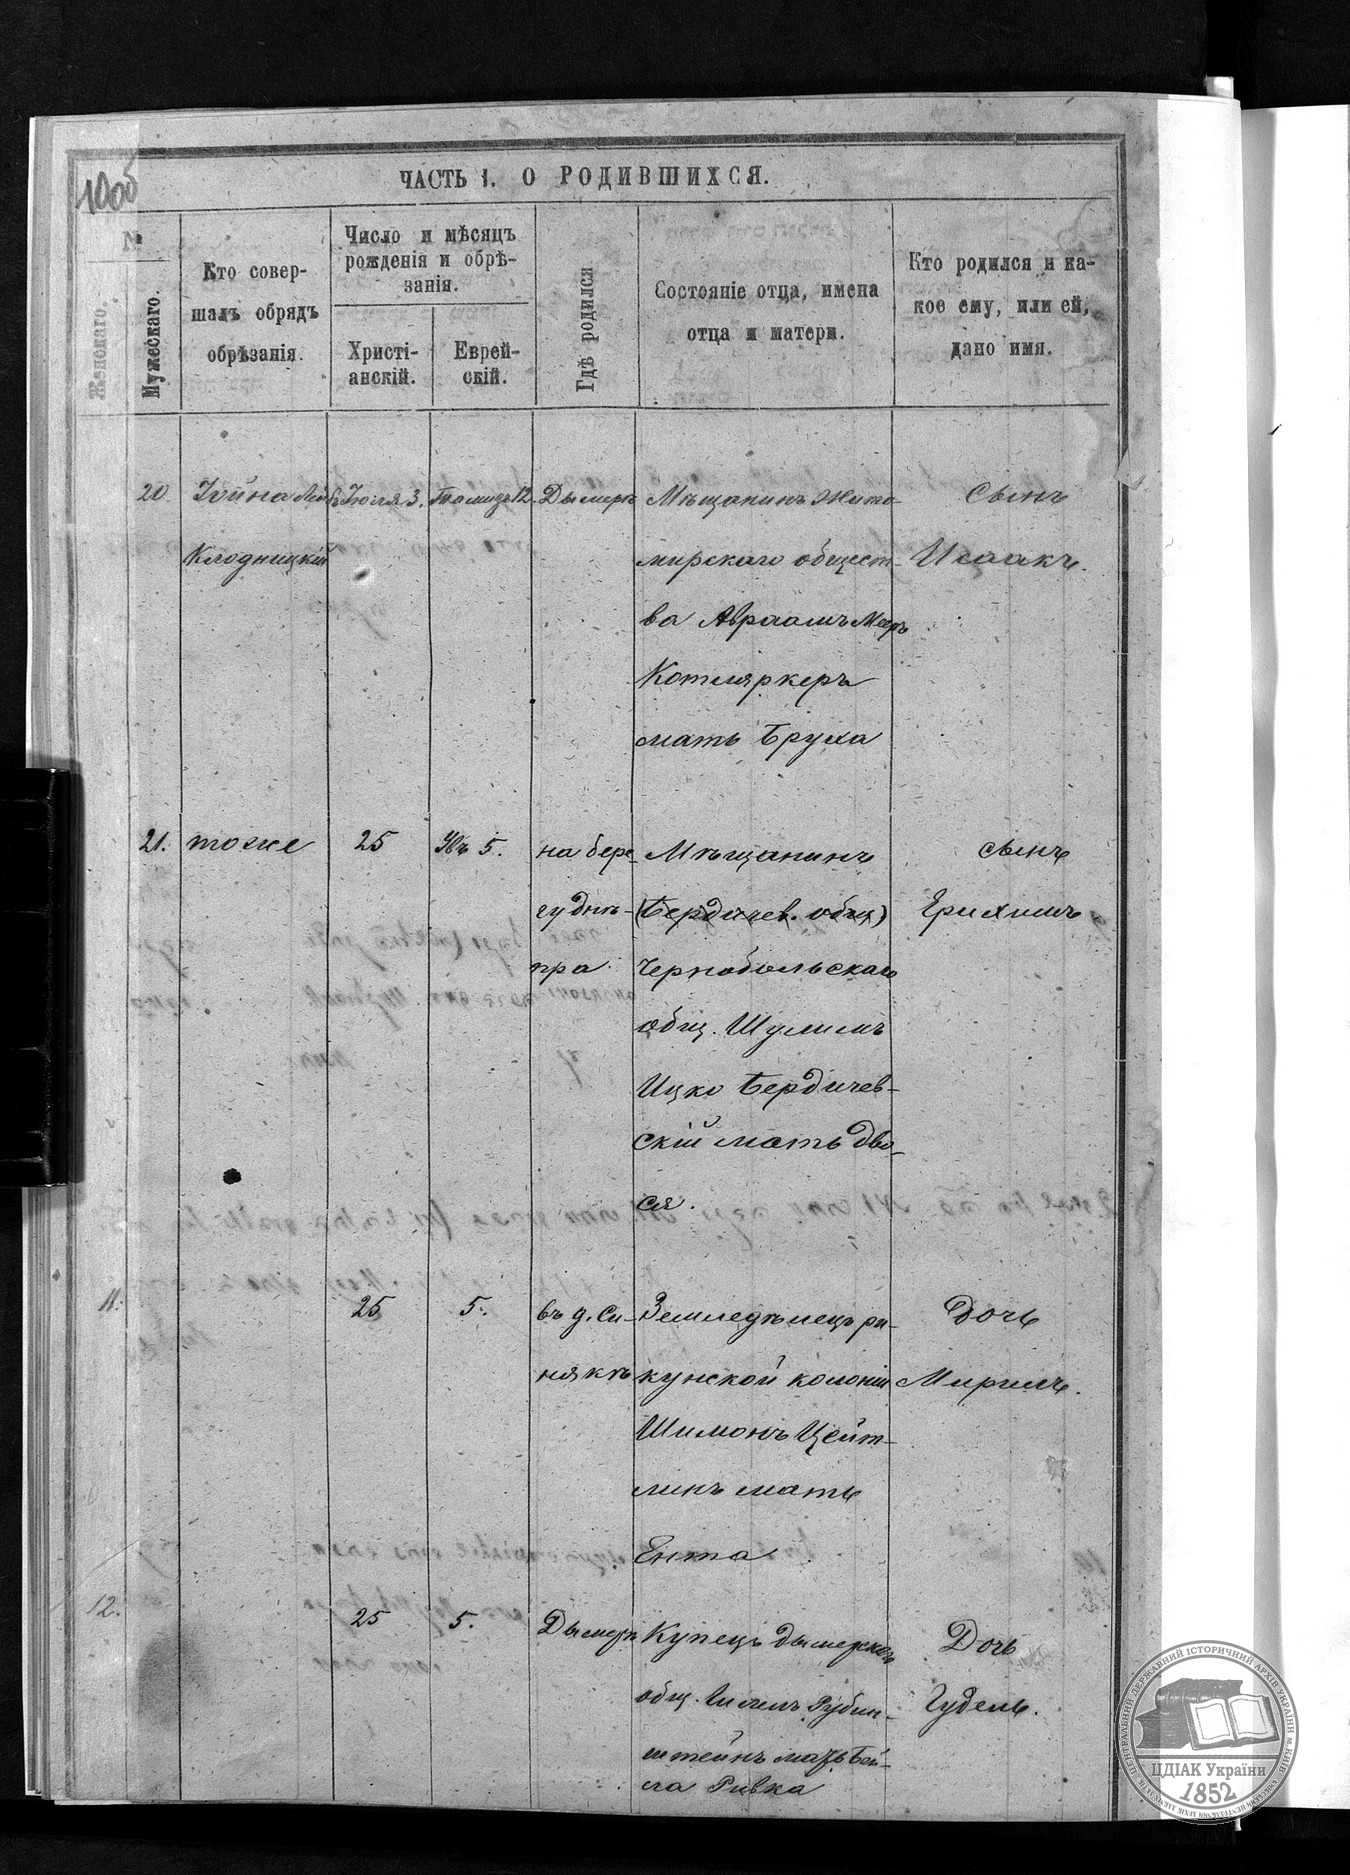 100об
ЧАСТЬ I. О РОДИВШИХСЯ.
№
Женскаго.
Мужескаго.
Кто совер-
шалъ обрядъ
обрѣзанія.
Число и мѣсяцъ
рожденія и обрѣ-
занія.
Христі-
анскій.
Еврей-
скій.
Гдѣ родился
Состояніе отца, имена
отца и матери.
Кто родился и ка-
кое ему, или ей,
дано имя.
20
Іойна Лейбъ
Клодницкій
Іюля 3.
Тамизъ 12.
Дымеръ
Мѣщанинъ Жито-
мирскаго общест-
ва Авраамъ Мееръ
Котляркеръ
мать Бруха
Сынъ
Исаакъ.
21.
тоже
25
Увъ 5.
на бере-
гу днѣ-
пра
Мѣщанинъ
(Бердичев. общ)
Чернобольскаго
общ. Шулимъ
Ицко Бердичев-
скій мать Дво-
ся.
сынъ
Ерихимъ
11.
25
5.
въ д. Си-
някѣ
Земледѣлецъ ри-
кунской колоніи
Шимонъ Цейт-
линъ мать
Ента
Дочь
Миримъ.
12.
25
5.
Дымеръ
Купецъ дымерскаго
общ. Рубин-
штейнъ мать Бей-
ла Ривка
Дочь
Гудель.
ЦЕНТРАЛЬНИЙ ДЕРЖАВНИЙ ІСТОРИЧНИЙ АРХІВ УКРАЇНИ м. КИЇВ
ЦДІАК України
1852